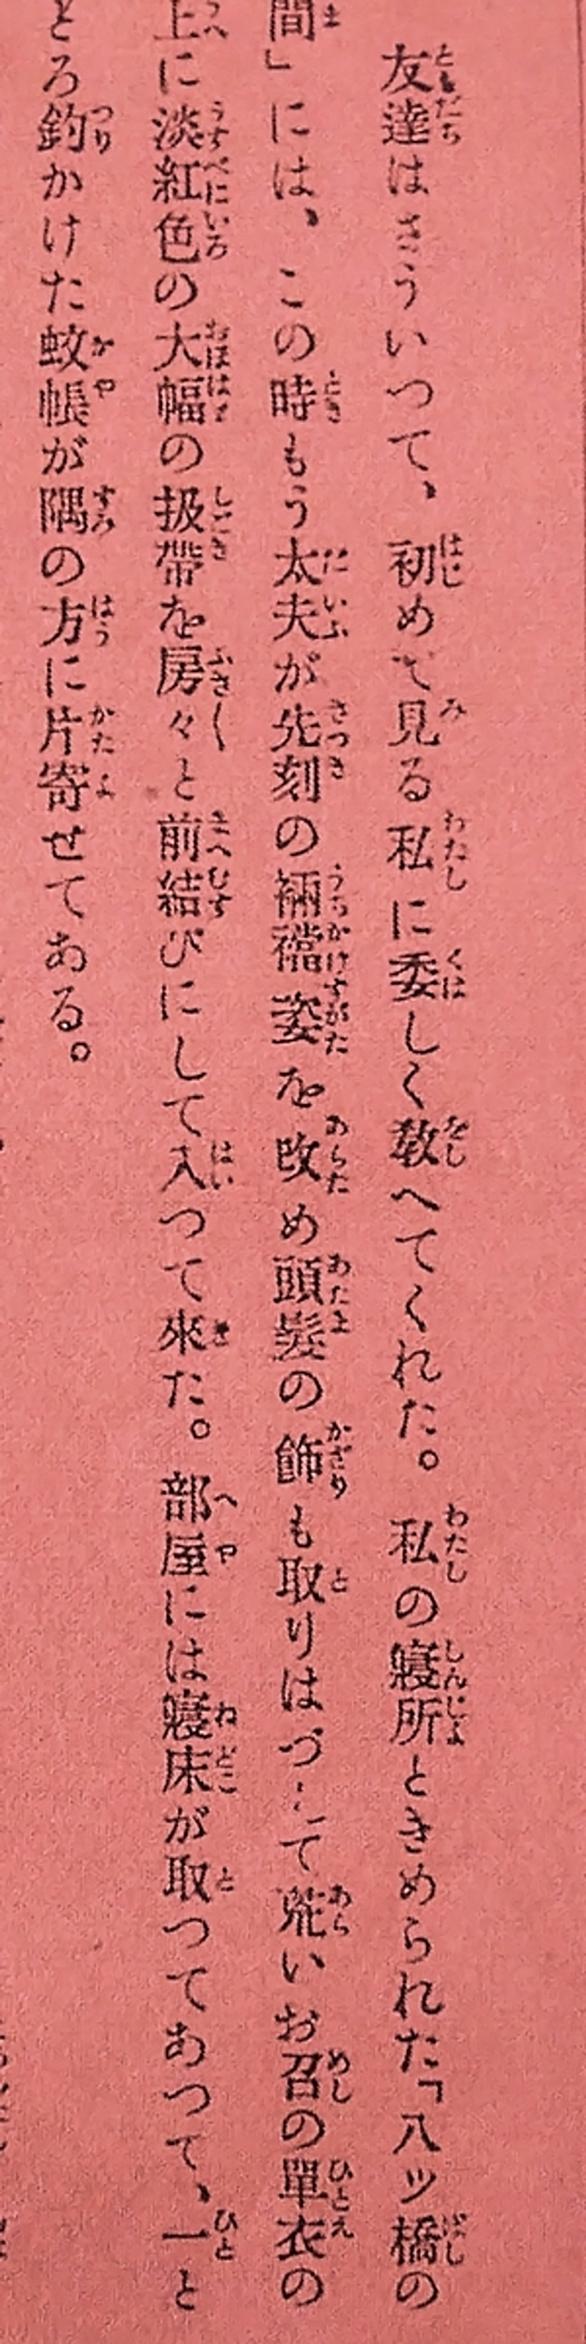 友達はさういつて、初めて見る私に委しく教へてくれた。私の寝所ときめられた「八ツ橋の
間」には、この時もう太夫が先刻の裲襠姿を改め頭髪の飾も取りはづして荒いお召の單衣の
上に淡紅色の大幅の扱帶を房々と前結びにして入つて來た。部屋には寢床が取つてあつて、一と
ころ釣かけた蚊帳が隅の方に片寄せてある。